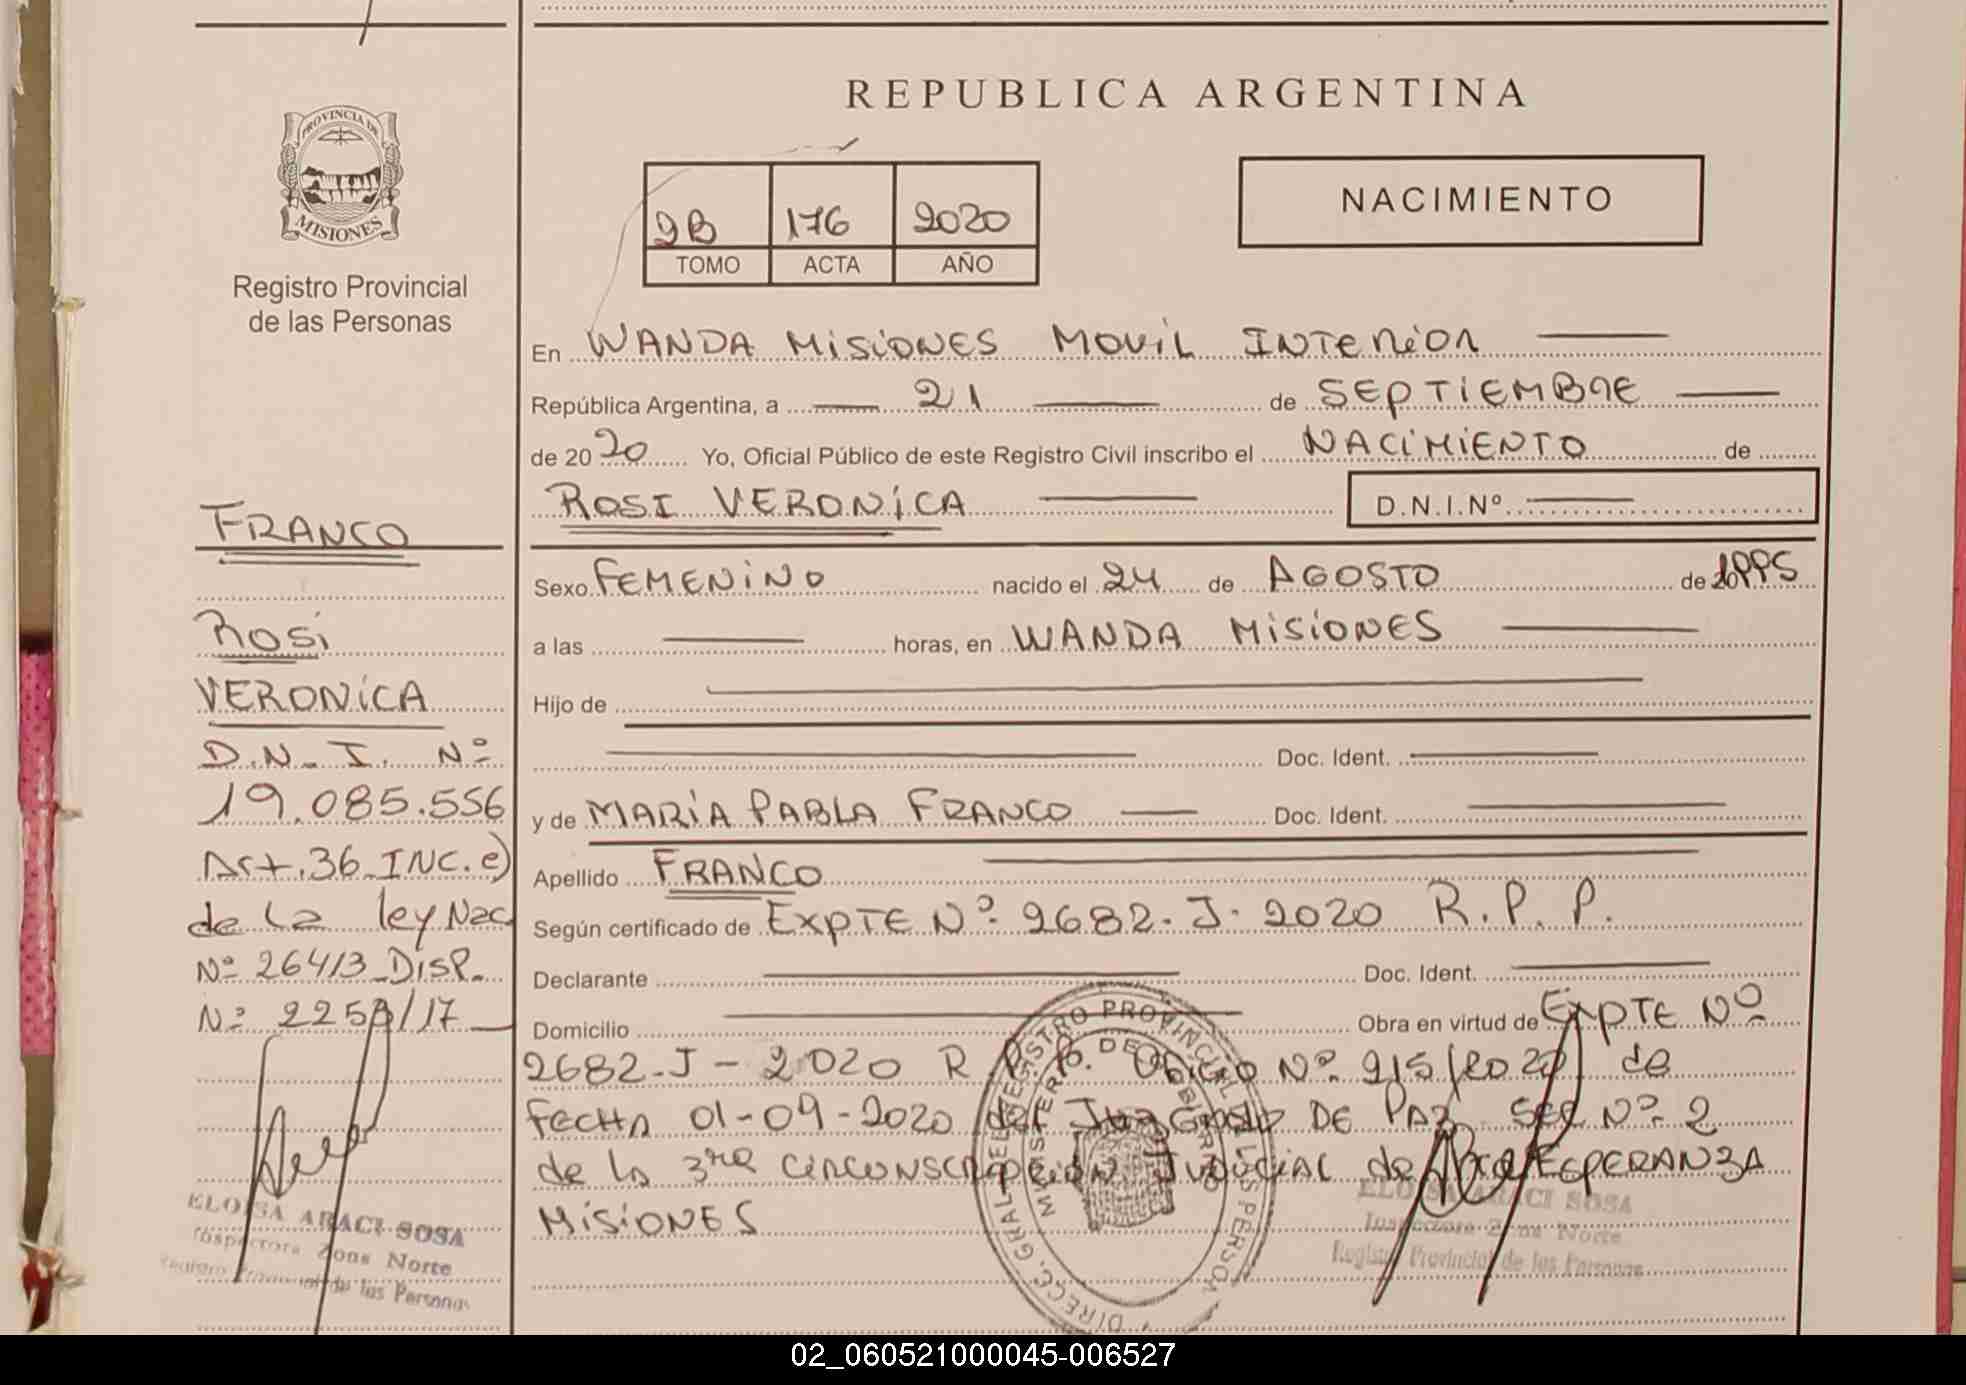 REPUBLICA ARGENTINA
PROVINCIA DE
MISIONES
Registro Provincial
de las Personas
2B 176 2020
TOMO ACTA AÑO
NACIMIENTO
En WANDA MISIONES MOVIL INTERIOR
República Argentina, a 21 de SEPTIEMBRE
de 2020 Yo, Oficial Público de este Registro Civil inscribo el NACIMIENTO de
ROSI VERONICA D.N.I.Nº
Sexo FEMENINO nacido el 24 de AGOSTO de 1995
a las horas, en WANDA MISIONES
Hijo de
Doc. Ident.
y de MARÍA PABLA FRANCO Doc. Ident.
Apellido FRANCO
Según certificado de EXPTE Nº 2682-J-2020 R.P.P.
Declarante Doc. Ident.
Domicilio Obra en virtud de EXPTE Nº
2682-J-2020 R.P.P. Oficio Nº 215/2020 de
FECHA 01-09-2020 del Juzgado DE PAZ SEC Nº 2
de la 3ra CIRCONSCRIPCION JUDICIAL de Pto ESPERANZA
MISIONES
FRANCO
ROSI
VERONICA
D.N.I. Nº
19.085.556
Art.36 INC.e)
de La ley Nac
Nº 26413 DISP.
Nº 2258/17
ELOISA ARACI SOSA
Inspectora Zona Norte
Registro Provincial de las Personas
DIRECC. GRAL. DEL REGISTRO PROVINCIAL DE LAS PERSONAS
MINISTERIO DE GOBIERNO
ELOISA ARACI SOSA
Inspectora Zona Norte
Registro Provincial de las Personas
02_060521000045-006527